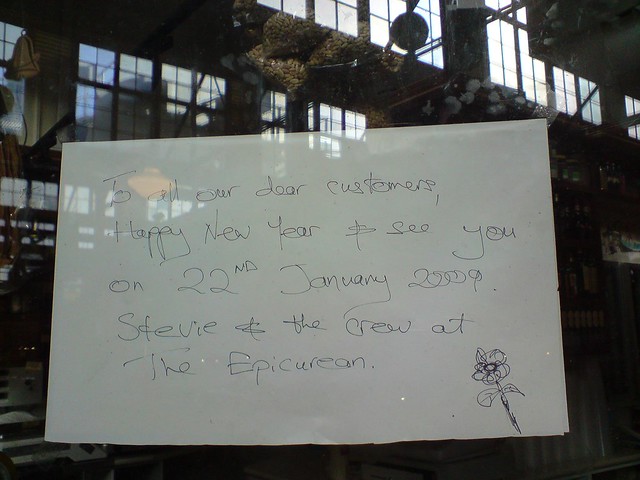 To all our dear customers,
Happy New Year & see you
on 22ND January 20009.
Stevie & the crew at
The Epicurean.